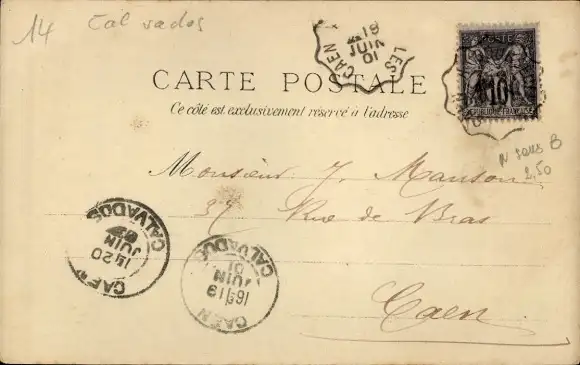 14 Calvados
CAEN
19
JUIN
01
LES
POSTE
10
REPUBLIQUE FRANÇAISE
CARTE POSTALE
Ce côté est exclusivement réservé à l'adresse
N sous B
2,50
Monsieur J. Manson
37 Rue de Bras
Caen
CAEN
15 20
JUIN
CALVADOS
CAEN
16 19
JUIN
01
CALVADOS